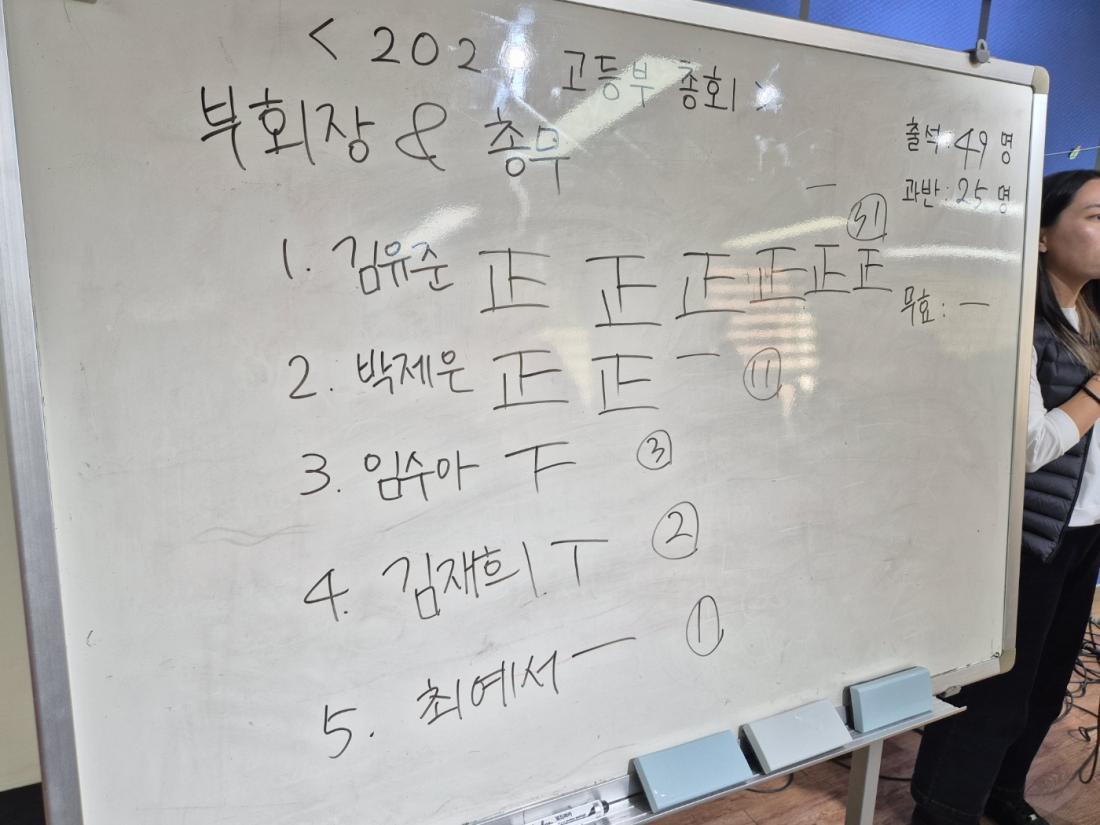 < 202 고등부 총회 >
부회장 & 총무
출석 : 49 명
과반 : 25 명
1. 김유준 正 正 正 正 正 正 一 31
무효 : 一
2. 박제운 正 正 一 11
3. 임수아 下 3
4. 김재희 丅 2
5. 최예서 一 1